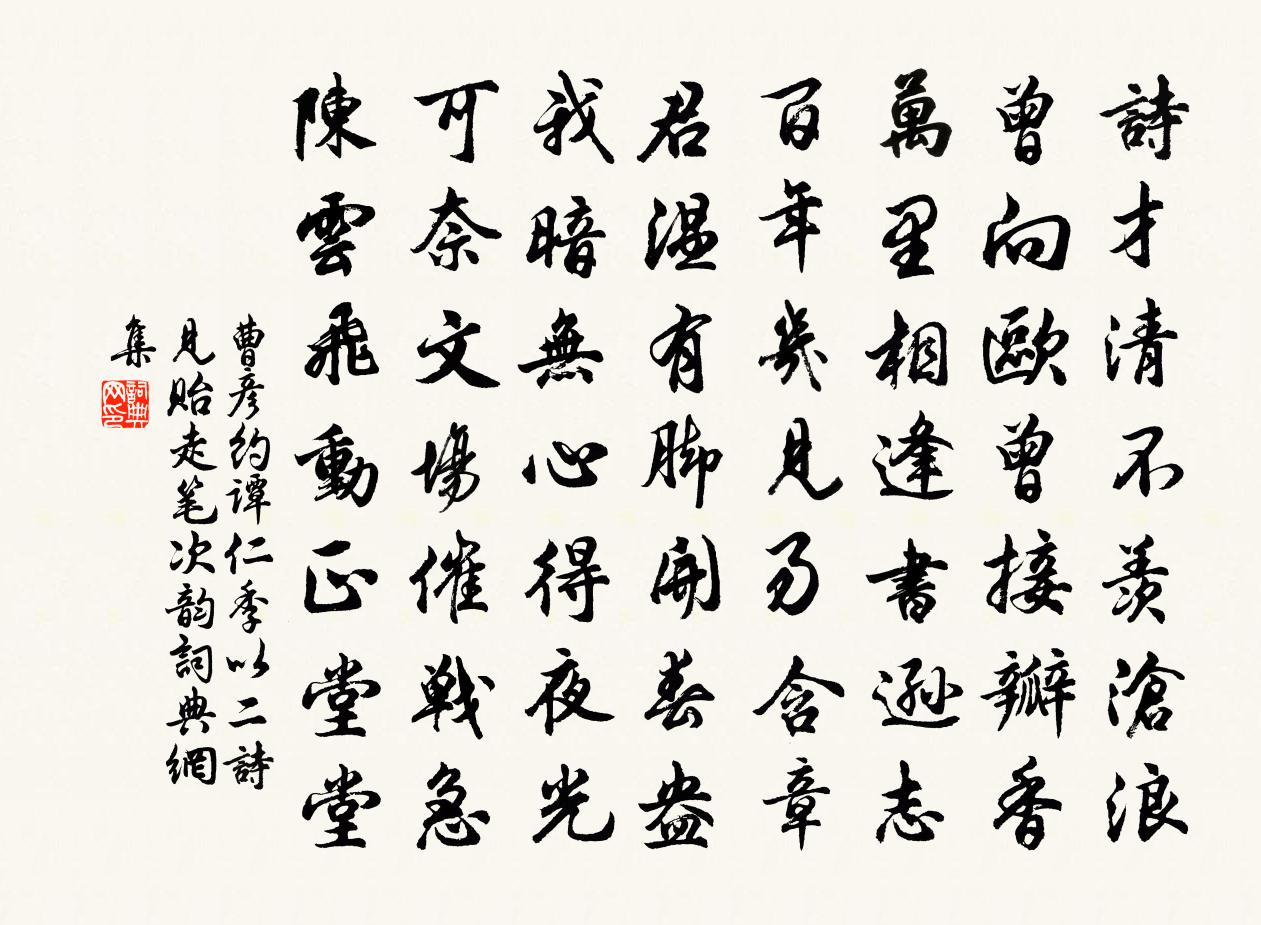 詩才清不羨滄浪
曾向歐曾接瓣香
萬里相逢書遜志
百年幾見易含章
君温有脚開春盎
我暗無心得夜光
可奈文場催戰急
陳雲飛動正堂堂
曹彦約譚仁季以二詩
見貽走笔次韵詞典網
集
詞典网印